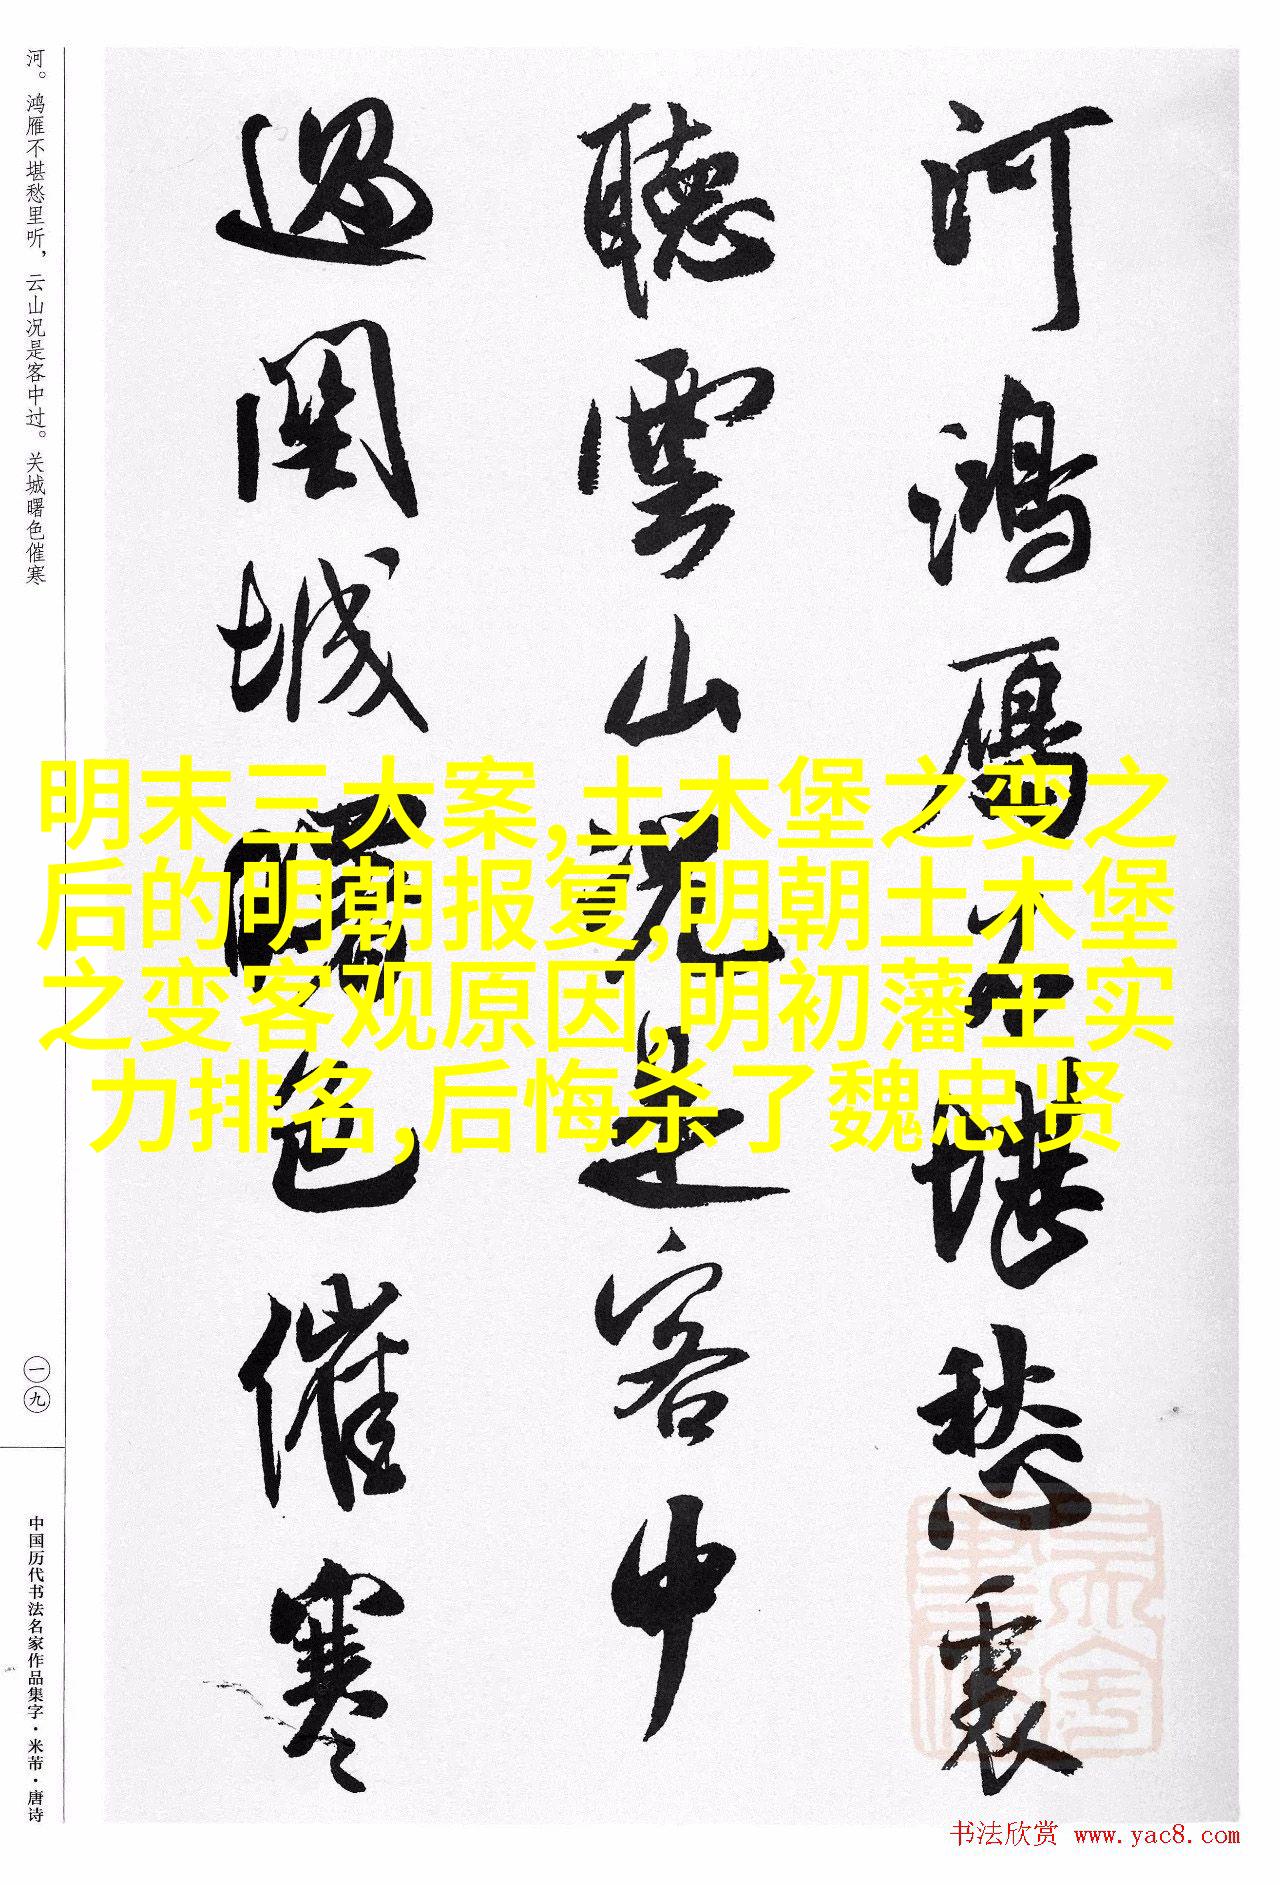 河。鸿雁不堪愁里听，云山况是客中过。关城曙色催寒
河鴻雁不堪愁裏
聽雲山况是客中
過関城曙色催寒
明末三大案,土木堡之变之
后的明朝报复,明朝土木堡
之变客观原因,明初藩王实
力排名,后悔杀了魏忠贤
一九
中国历代书法名家作品集字·米芾·唐诗
书法欣赏 www.yac8.com